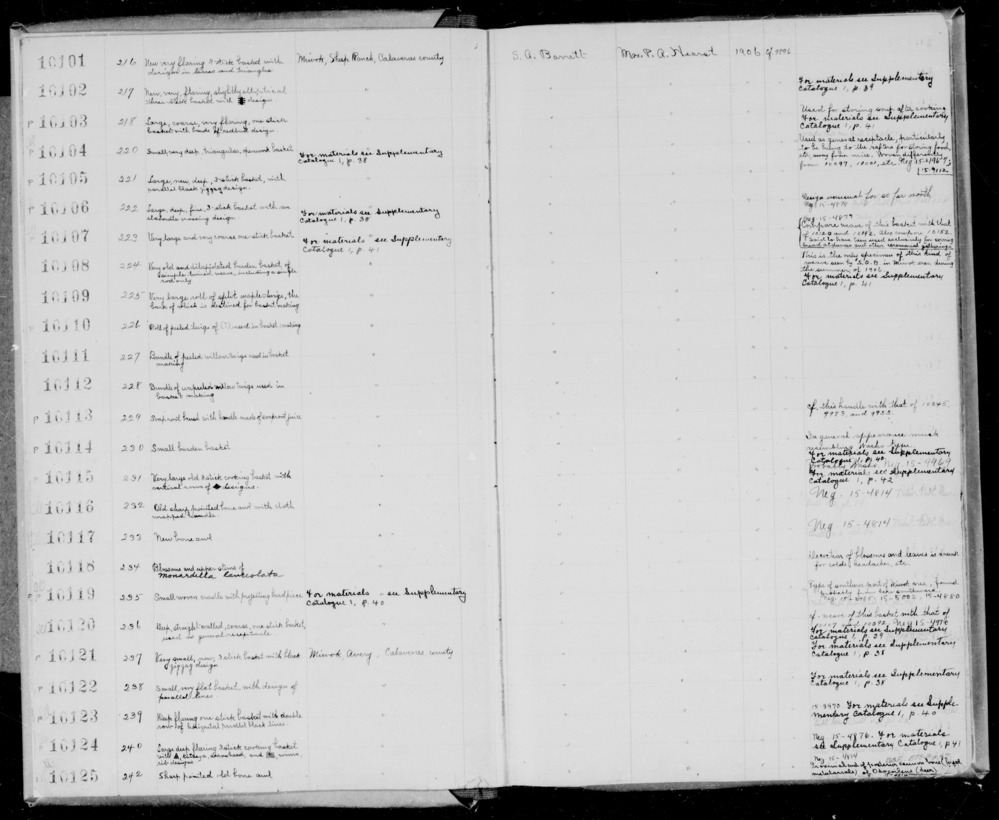 10101 216 New very flaring 3 stick basket with Miwok, Sheep Ranch, Calaveras county S. A. Barrett Mrs. P. A. Hearst 1906
designs in lines and triangles
10102 217 New, very flaring, slightly elliptical For materials see Supplementary
three stick basket with design Catalogue 1, p. 39
10103 218 Large, coarse, very flaring, one stick Used for storing soup after cooking
basket with bands of redbud design. For materials see Supplementary
Catalogue 1, p. 41
10104 220 Small, very deep, triangular, openwork basket For materials see Supplementary Used as general receptacle, particularly
Catalogue 1, p. 38 to be hung to the rafters for storing food,
etc. away from mice. Woven differently
from 10097,
15-9112
10105 221 Large, new, deep, 3-stick basket, with
parallel black zigzag design.
10106 222 Large, deep, fine, 3-stick basket with an For materials see Supplementary Design unusual for so far north
elaborate crossing design Catalogue 1, p. 38
10107 223 Very large and very coarse one-stick basket For materials see Supplementary Neg 15-4879
Catalogue 1, p. 41 Compare weave of this basket with that
of 10120 and 10092. Also compare 10152
Said to have been used exclusively for serving
bread at dances and other ceremonial gatherings
10108 224 Very old and dilapidated burden basket of This is the only specimen of this kind of
simple twined weave, including a single weave seen by S.A.B. in Miwok area during
rod only the summer of 1906
For materials see Supplementary
Catalogue 1, p. 41
10109 225 Very large roll of split maple twigs, the
bark of which is destined for basket making
10110 226 Roll of peeled twigs of (?) used in basket making
10111 227 Bundle of peeled willow twigs used in basket
making
10112 228 Bundle of unpeeled willow twigs used in
basket making
10113 229 Soaproot brush with handle made of soaproot juice cf. this handle with that of 10245,
9953, and 9955.
10114 230 Small burden basket In general appearance much
resembling Washo type
For materials see Supplementary
Catalogue 1, p. 40
Probably Washo. Neg. 15-4969
10115 231 Very large old 3 stick cooking basket with For materials see Supplementary
vertical rows of designs. Catalogue 1, p. 42
Neg. 15-4814
10116 232 Old sharp pointed bone awl with cloth
wrapped handle. Neg. 15-4814
10117 233 New bone awl
10118 234 Blossoms and upper stems of Decoction of blossoms and leaves is drunk
Monardella lanceolata for colds, headaches, etc.
10119 235 Small woven cradle with projecting head piece For materials see Supplementary Type of southern part of Miwok area, found
Catalogue 1, p. 40 probably from here southward.
15-5002, 15-4880
10120 236 Deep, straight walled, coarse, one stick basket, cf. weave of this basket with that of
used as general receptacle 10107 and 10092, Neg 15-4976
For materials see Supplementary
Catalogue 1, p. 39
10121 237 Very small, new, 3 stick basket with black Miwok, Avery, Calaveras county For materials see Supplementary
zigzag design Catalogue 1, p. 38
10122 238 Small, very flat basket, with design of For materials see Supplementary
parallel lines Catalogue 1, p. 38
10123 239 Deep flaring one stick basket with double For materials see Supple-
row of horizontal parallel black lines. mentary Catalogue 1, p. 40
10124 240 Large deep flaring 3 stick cooking basket Neg. 15-4876. For materials
with arrowhead, and see Supplementary Catalogue 1, p 41
designs
10125 242 Sharp pointed old bone awl Neg 15-4814